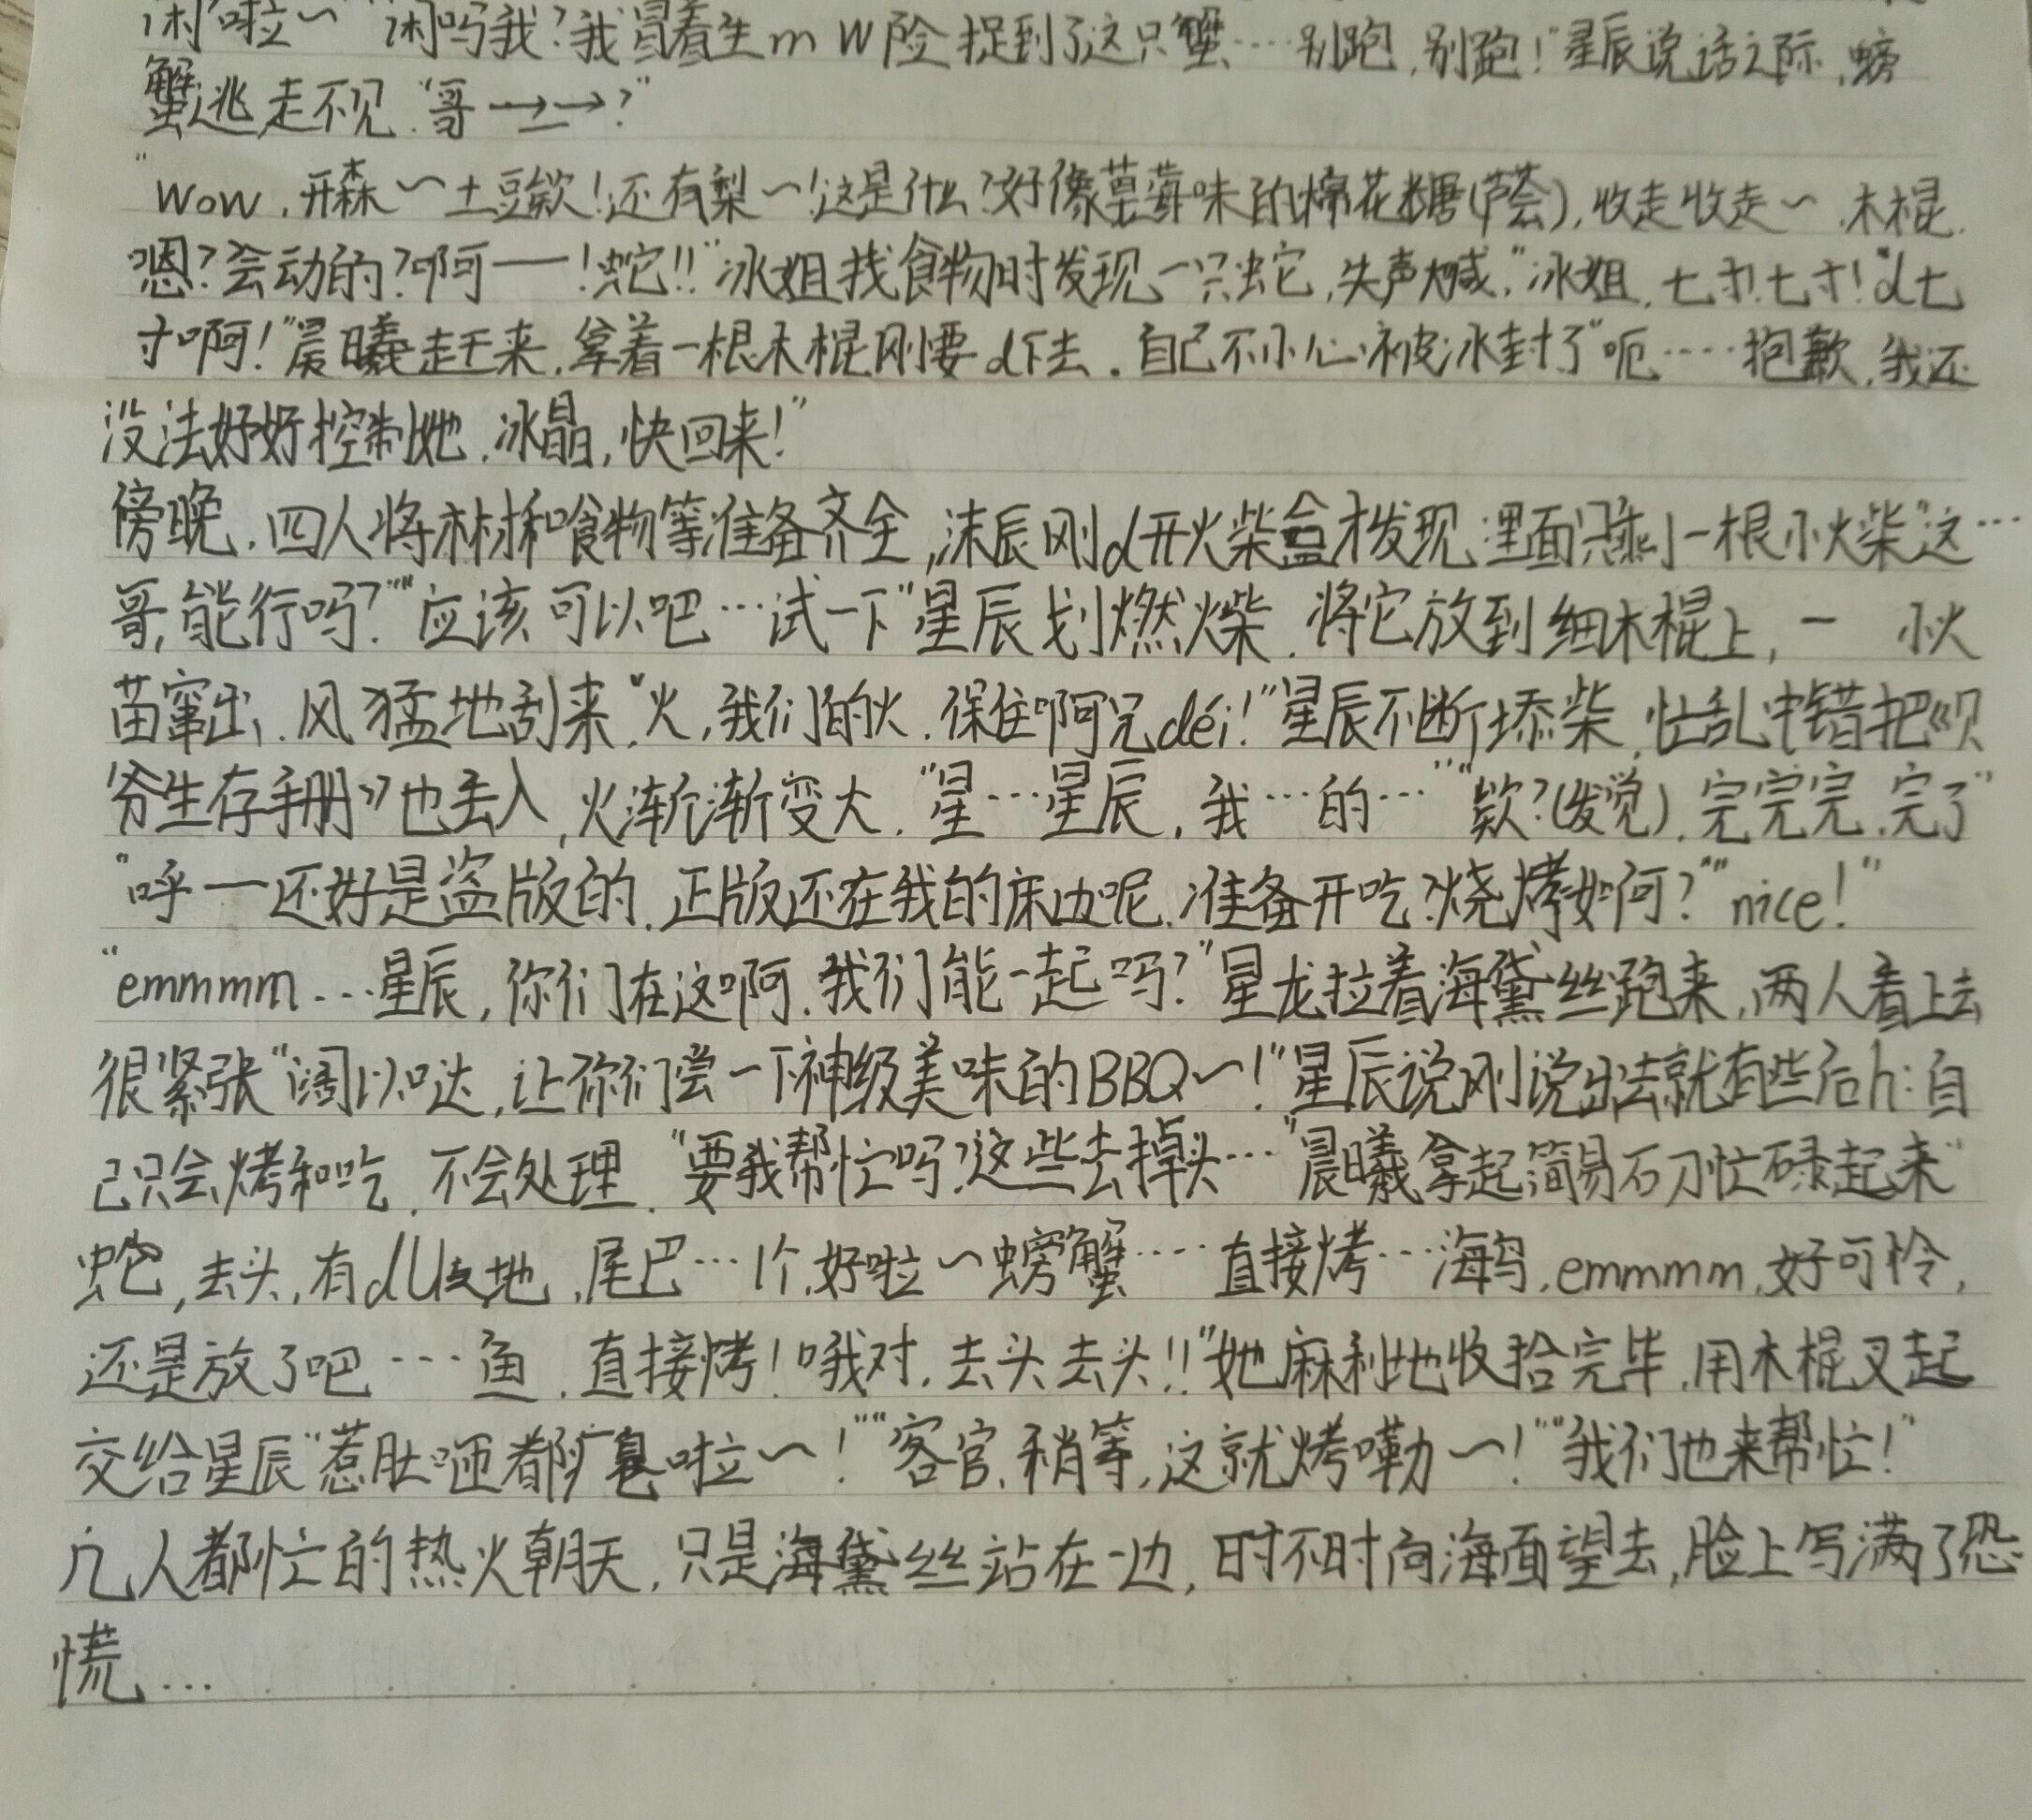 啦～”“闲吗我？我冒着生mw险捉到了这只蟹……别跑，别跑！”星辰说话之际，螃
蟹逃走不见.“哥→→？”
“Wow，开森～土豆欸！还有梨～！这是什么？好像草莓味的棉花糖(芦荟)，收走收走～.木棍.
嗯？会动的？啊——！蛇！！”冰姐找食物时发现一只蛇，失声喊，“冰姐，七寸！七寸！d七
寸啊！”晨曦赶来，拿着一根木棍刚要d下去.自己不小心被冰封了“呃……抱歉，我还
没法好好控制她.冰晶，快回来！”
傍晚.四人将木材和食物等准备齐全，沫辰刚d开火柴盒才发现里面只剩一根小火柴“这…
哥，能行吗？”“应该可以吧…试一下”星辰划燃火柴.将它放到细木棍上，一 小火
苗窜出.风猛地刮来“火，我们的火.保住啊兄déi！”星辰不断添柴，忙乱中错把《贝
爷生存手册》也丢入，火渐渐变大.“星…星辰，我…的…”“欸？(发觉).完完完.完了”
“呼—还好是盗版的.正版还在我的床边呢.准备开吃？烧烤如何？”“nice！”
“emmmm...星辰，你们在这啊.我们能一起吗？”星龙拉着海黛丝跑来，两人看上去
很紧张“阔以哒，让你们尝一下神级美味的BBQ～！”星辰说刚说出去就有些后h：自
己只会烤和吃.不会处理.“要我帮忙吗？这些去掉头…”晨曦拿起简易石刀忙碌起来“
蛇，去头，有dU地，尾巴…1个.好啦～螃蟹……直接烤…海鸟.emmmm，好可怜，
还是放了吧…鱼.直接烤！哦对.去头去头！！”她麻利地收拾完毕.用木棍叉起
交给星辰“惹肚咂都啦～！”“客官.稍等，这就烤嘞～！”“我们也来帮忙！”
几人都忙的热火朝天，只是海黛丝站在一边，时不时向海面望去，脸上写满了恐
慌...